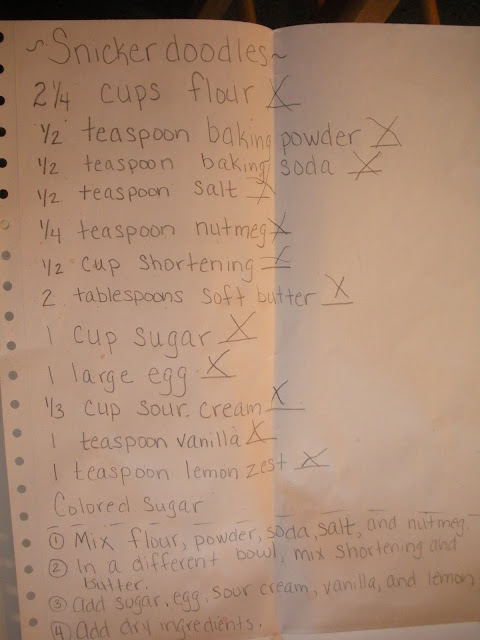 ~Snickerdoodles~
2 1/4 cups flour X
1/2 teaspoon baking powder X
1/2 teaspoon baking soda X
1/2 teaspoon salt X
1/4 teaspoon nutmeg X
1/2 cup shortening X
2 tablespoons soft butter X
1 cup sugar X
1 large egg X
1/3 cup sour cream X
1 teaspoon vanilla X
1 teaspoon lemon zest X
Colored sugar
① Mix flour, powder, soda, salt, and nutmeg.
② In a different bowl, mix shortening and
butter.
③ add sugar, egg, sour cream, vanilla, and lemon
④ add dry ingredients.